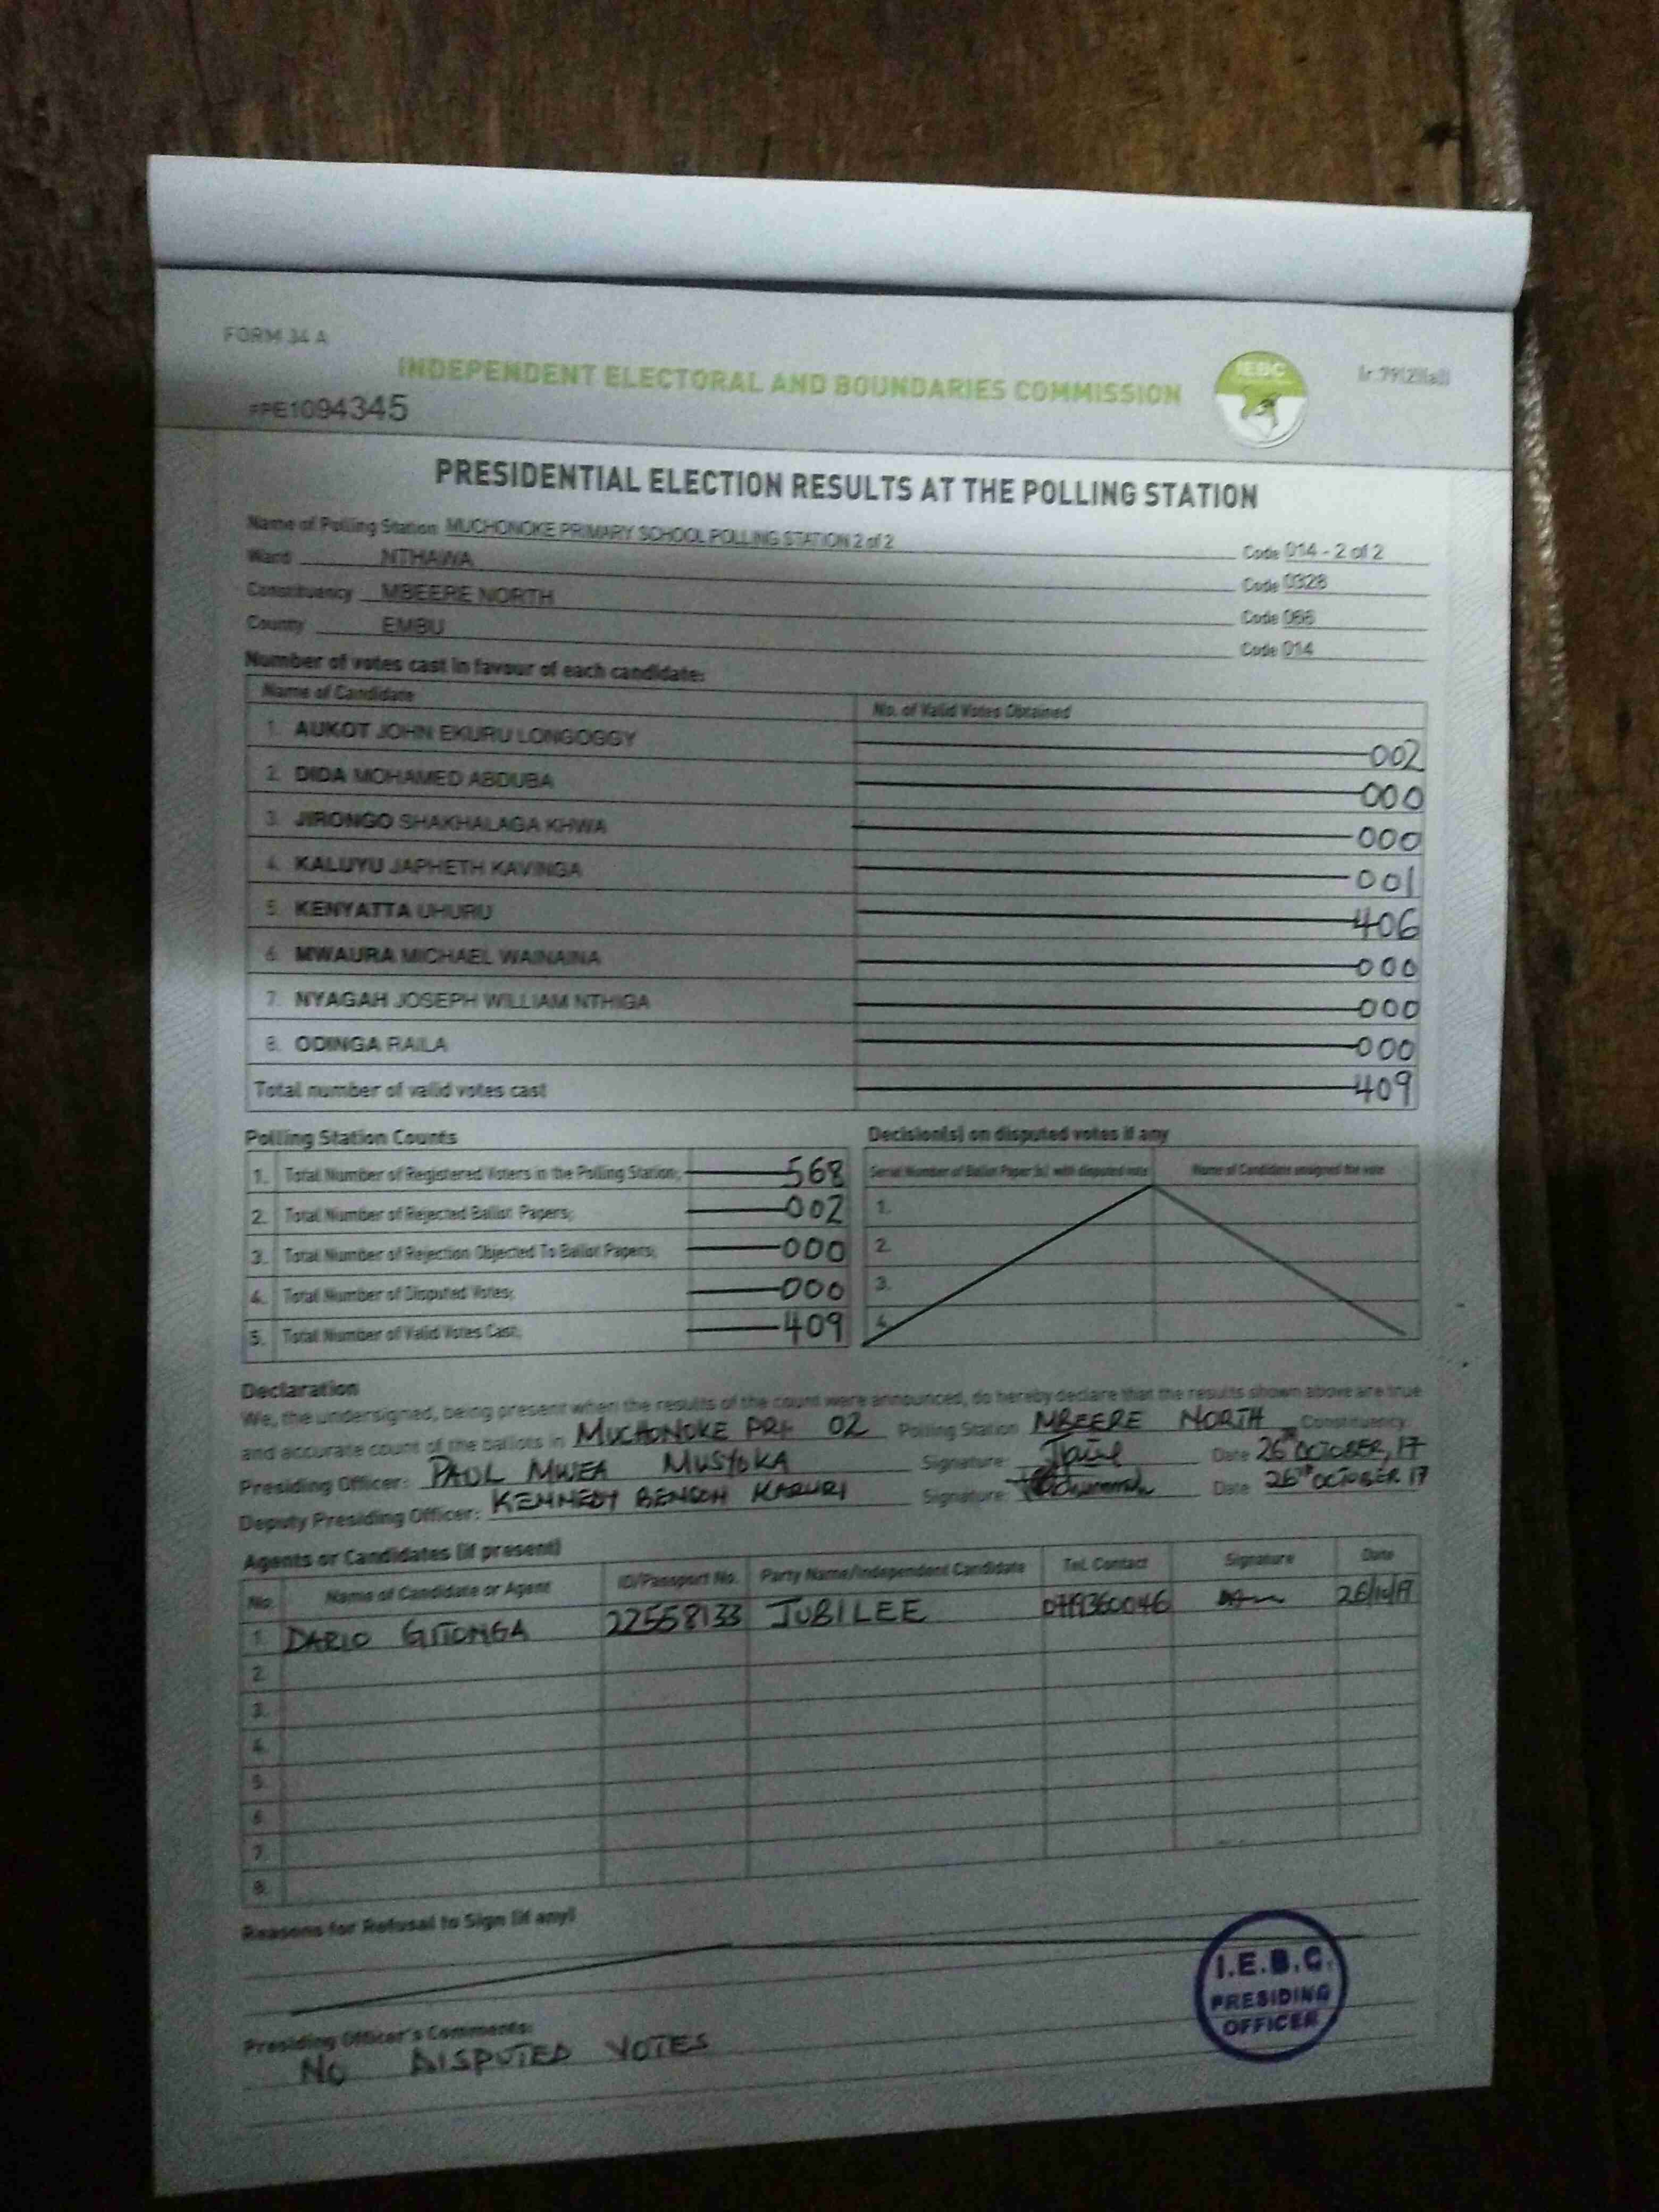 FORM 34 A
INDEPENDENT ELECTORAL AND BOUNDARIES COMMISSION
IEBC
PE1094345
PRESIDENTIAL ELECTION RESULTS AT THE POLLING STATION
Name of Polling Station MUCHONOKE PRIMARY SCHOOL POLLING STATION 2 of 2 Code 014 - 2 of 2
Ward NTHAWA Code 0328
Constituency MBEERE NORTH Code 066
County EMBU Code 014
Number of votes cast in favour of each candidate:
Name of Candidate No. of Valid Votes Obtained
1. AUKOT JOHN EKURU LONGOGGY 002
2. DIDA MOHAMED ABDUBA 000
3. JIRONGO SHAKHALAGA KHWA 000
4. KALUYU JAPHETH KAVINGA 001
5. KENYATTA UHURU 406
6. MWAURA MICHAEL WAINAINA 000
7. NYAGAH JOSEPH WILLIAM NTHIGA 000
8. ODINGA RAILA 000
Total number of valid votes cast 409
Polling Station Counts
1. Total Number of Registered Voters in the Polling Station; 568
2. Total Number of Rejected Ballot Papers; 002
3. Total Number of Rejection Objected To Ballot Papers; 000
4. Total Number of Disputed Votes; 000
5. Total Number of Valid Votes Cast; 409
Decision(s) on disputed votes if any
Serial Number of Ballot Paper (s) with disputed vote Name of Candidate assigned the vote
1.
2.
3.
4.
Declaration
We, the undersigned, being present when the results of the count were announced, do hereby declare that the results shown above are true
and accurate count of the ballots in MUCHONOKE PRI 02 Polling Station MBEERE NORTH Constituency.
Presiding Officer: PAUL MWEA MUSYOKA Signature: Date 26TH OCTOBER, 17
Deputy Presiding Officer: KENNEDY BENSON KARURI Signature: Date 26TH OCTOBER 17
Agents or Candidates (if present)
No. Name of Candidate or Agent ID/Passport No. Party Name/Independent Candidate Tel. Contact Signature Date
1. DARIO GITONGA 22558133 JUBILEE 26/10/17
2.
3.
4.
5.
6.
7.
8.
Reasons for Refusal to Sign (if any)
Presiding Officer's Comments:
NO DISPUTED VOTES
I.E.B.C.
PRESIDING
OFFICER